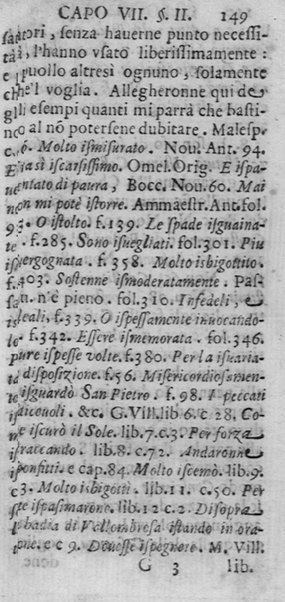 CAPO VII. §. II. 149
satori, senza hauerne punto necessi-
tà, l'hanno vsato liberissimamente:
e puollo altresì ognuno, solamente
che'l voglia. Allegheronne qui de
gli esempi quanti mi parrà che basti-
no al nō potersene dubitare. Malesp.
c. 6. Molto ismisurato. Nou. Ant. 94.
E iscarsissimo. Omel. Orig. E ispa-
uentato di paura, Bocc. Nou. 60. Mai
non mi potè istorre. Ammaestr. Ant. fol.
93. O istolto. f. 139. Le spade isguaina-
te. f. 285. Sono isuegliati. fol. 301. Piu
isuergognata. f. 358. Molto isbigottito.
f. 403. Sostenne ismoderatamente. Pas-
sau. n'è pieno. fol. 310. Infedeli, e
isleali, f. 339. O ispessamente inuocando-
lo. f. 342. Essere ismemorata. fol. 346.
pure ispesse volte. f. 380. Per la isuaria-
ta disposizione. f. 56. Misericordiosamen-
te isguardò San Pietro. f. 98. I peccati
isdiceuoli. &c. G. Vill. lib 6. c 28. Co-
me iscurò il Sole. lib. 7. c. 3. Per forza
istraccando. lib. 8. c. 72. Andaronne
isconfitti. e cap. 84. Molto iscemò. lib. 9.
c 3. Molto isbigottì. lib. 11. c. 50. Per
iste ispasimarone. lib. 12 c. 2. Disopra
badia di Vallombrosa istando in ora-
one. e c 9. Douesse ispegnere. M. Vill.
G 3 lib.